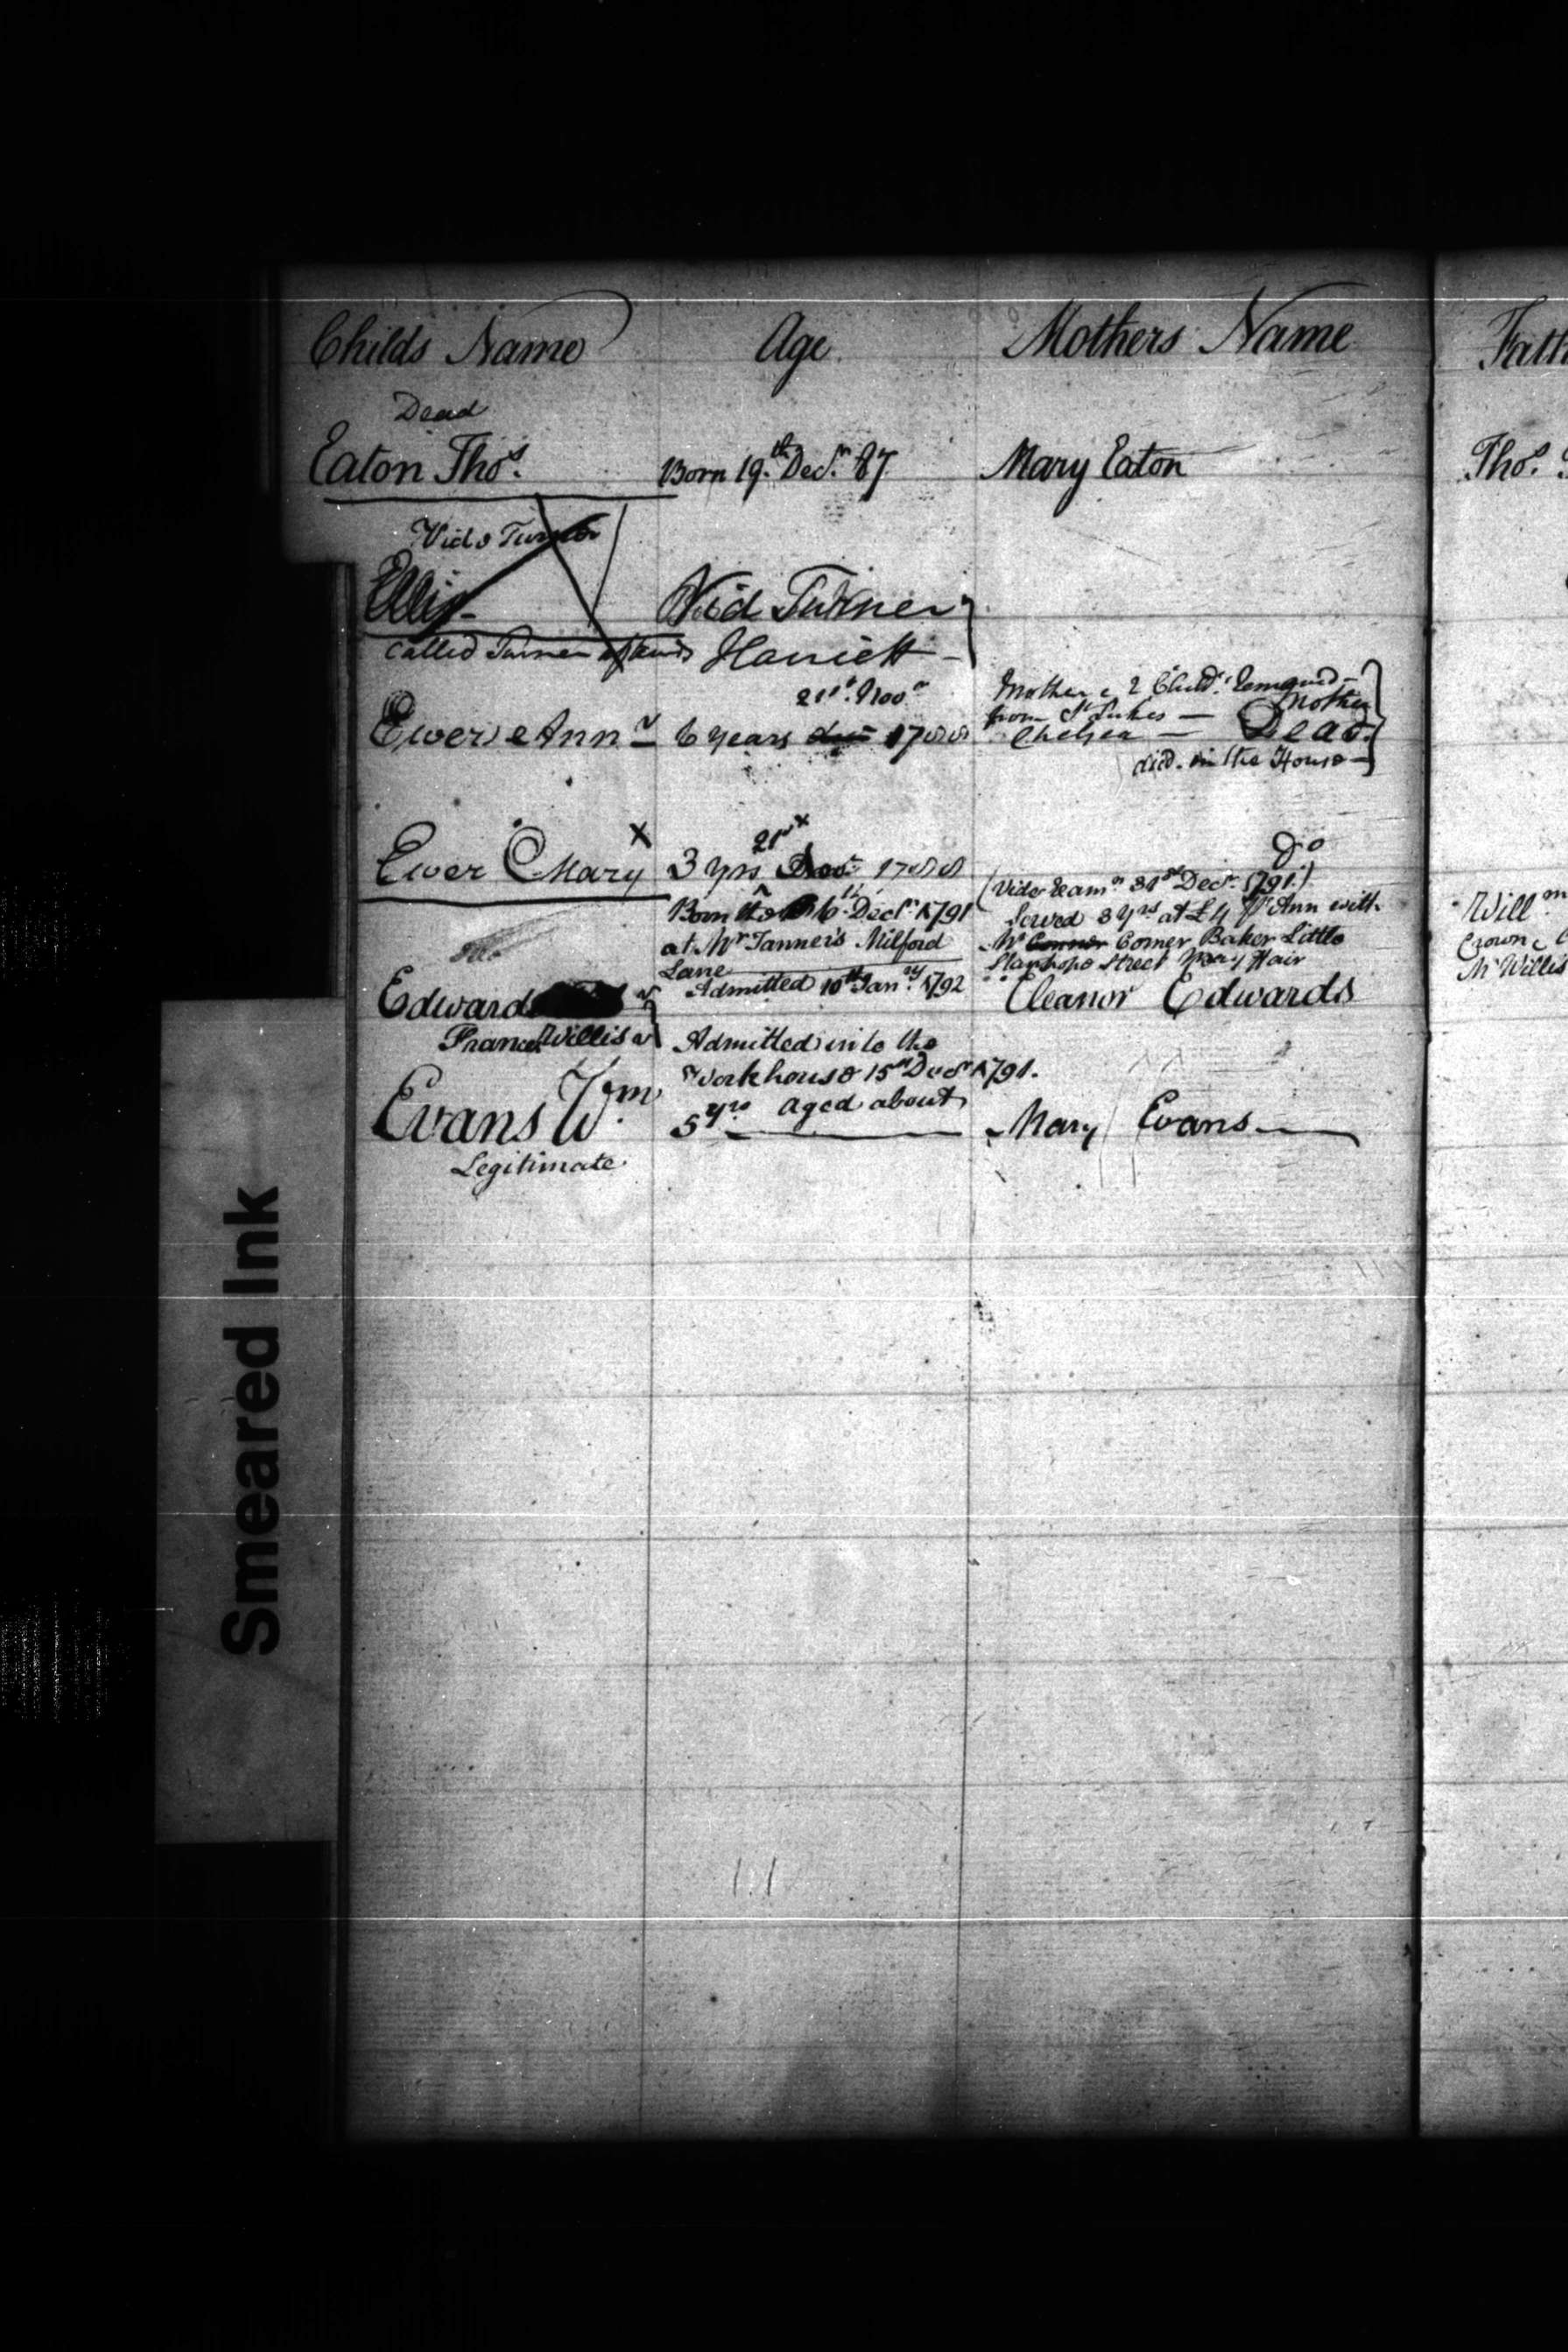 Childs Name Age Mothers Name Fath
Dead
Eaton Thos. Born 19th Decr. 87 Mary Eaton Thos.
Vide Turner
Ellis Vid Turner
Called Turner Harriett
21st Novr
Mother & 2 Childn. Removed
from St Lukes — Mother
Ewer Ann 6 years 1788 Chelsea — Dead
died in the House
21st
Ewer Mary x 3 yrs 1788 Do
(Vide Exam n 31st Decr. 1791.)
Born the 6th. Decr. 1791 Served 3 yrs at £4 Pr Ann with Willm
at Mr Tanner's Milford Mr Connor Comer Baker Little Crown
Lane Stanhope Street May Fair Mr Willis
Edward Admitted 10th Jany. 1792 Eleanor Edwards
Frances Willis
Admitted into the
Workhouse 15th Decr 1791.
Evans Wm. 5 yrs aged about Mary Evans
Legitimate
Smeared Ink